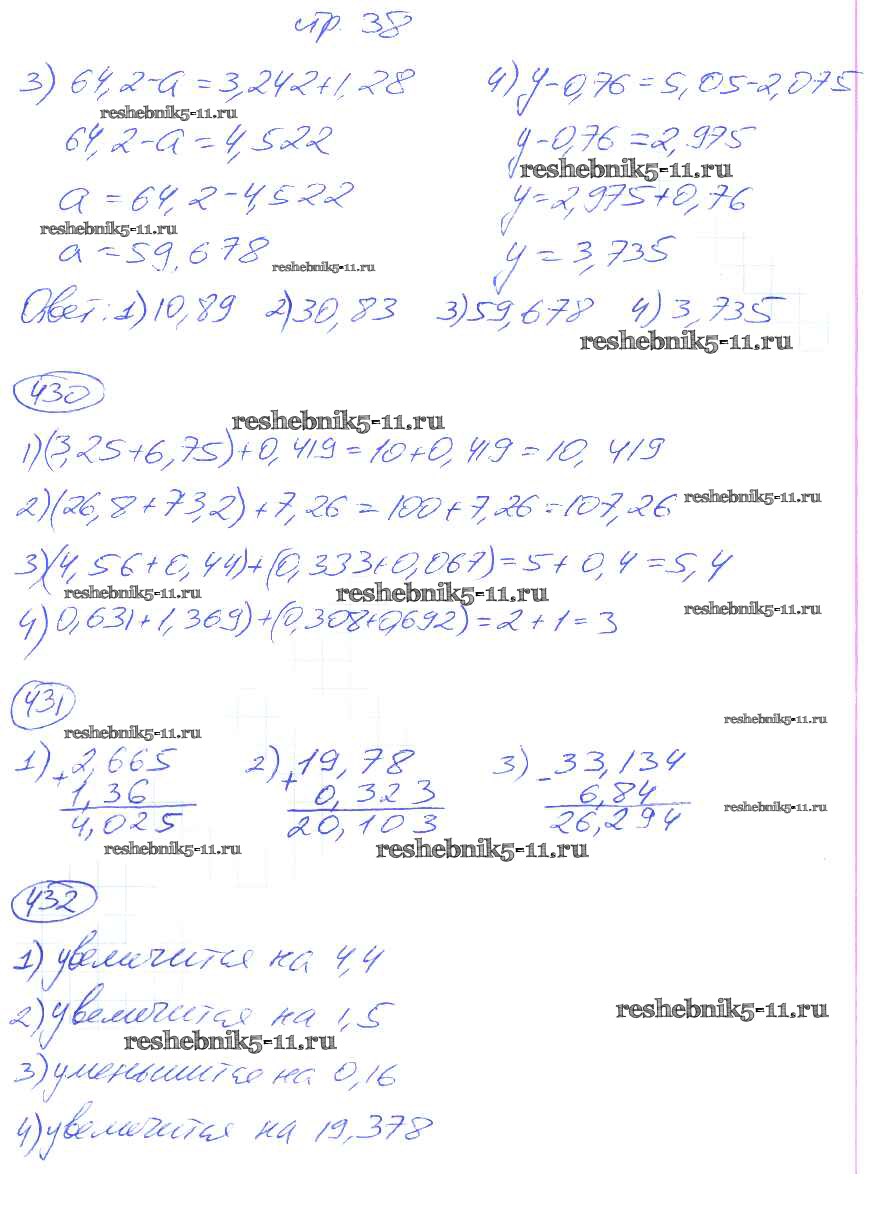 стр. 38
3) 64,2-а = 3,242+1,28 4) у-0,76 = 5,05-2,075
reshebnik5-11.ru
64,2-а = 4,522 у-0,76 = 2,975
reshebnik5-11.ru
а = 64,2-4,522 у = 2,975+0,76
reshebnik5-11.ru
а = 59,678 у = 3,735
reshebnik5-11.ru
Ответ: 1) 10,89 2) 30,83 3) 59,678 4) 3,735
reshebnik5-11.ru
430
reshebnik5-11.ru
1) (3,25+6,75)+0,419 = 10+0,419 = 10,419
2) (26,8+73,2)+7,26 = 100+7,26 = 107,26 reshebnik5-11.ru
3) (4,56+0,44)+(0,333+0,067) = 5+0,4 = 5,4
reshebnik5-11.ru reshebnik5-11.ru reshebnik5-11.ru
4) 0,631+1,369)+(0,308+0,692) = 2+1 = 3
431
reshebnik5-11.ru reshebnik5-11.ru
1) + 2,665 2) + 19,78 3) - 33,134
1,36 0,323 6,84 reshebnik5-11.ru
4,025 20,103 26,294
reshebnik5-11.ru reshebnik5-11.ru
432
1) увеличится на 4,4
2) увеличится на 1,5 reshebnik5-11.ru
reshebnik5-11.ru
3) уменьшится на 0,16
4) увеличится на 19,378